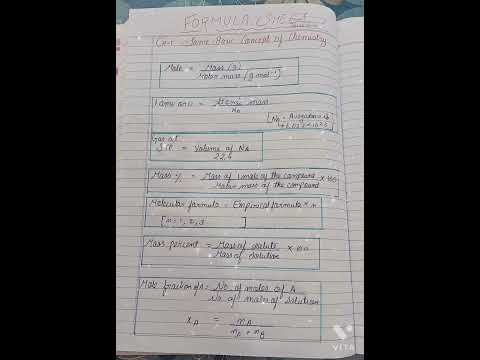 FORMULA SHEET
Ch-1 Some Basic Concept of Chemistry
Mole = Mass (g)
Molar mass (g mol⁻¹)
1 amu or u = Atomic mass
Nₐ
[Nₐ = Avogadro's
Gas at
STP = Volume of Nₐ
22.4
Mass % = Mass of 1 mole of the compound × 100
Molar mass of the compound
Molecular formula = Empirical formula × n
[n = 1, 2, 3 ]
Mass percent = Mass of solute × 100
Mass of solution
Mole fraction of A = No of moles of A
No of moles of solution
xA = nA
nA + nB
VITA